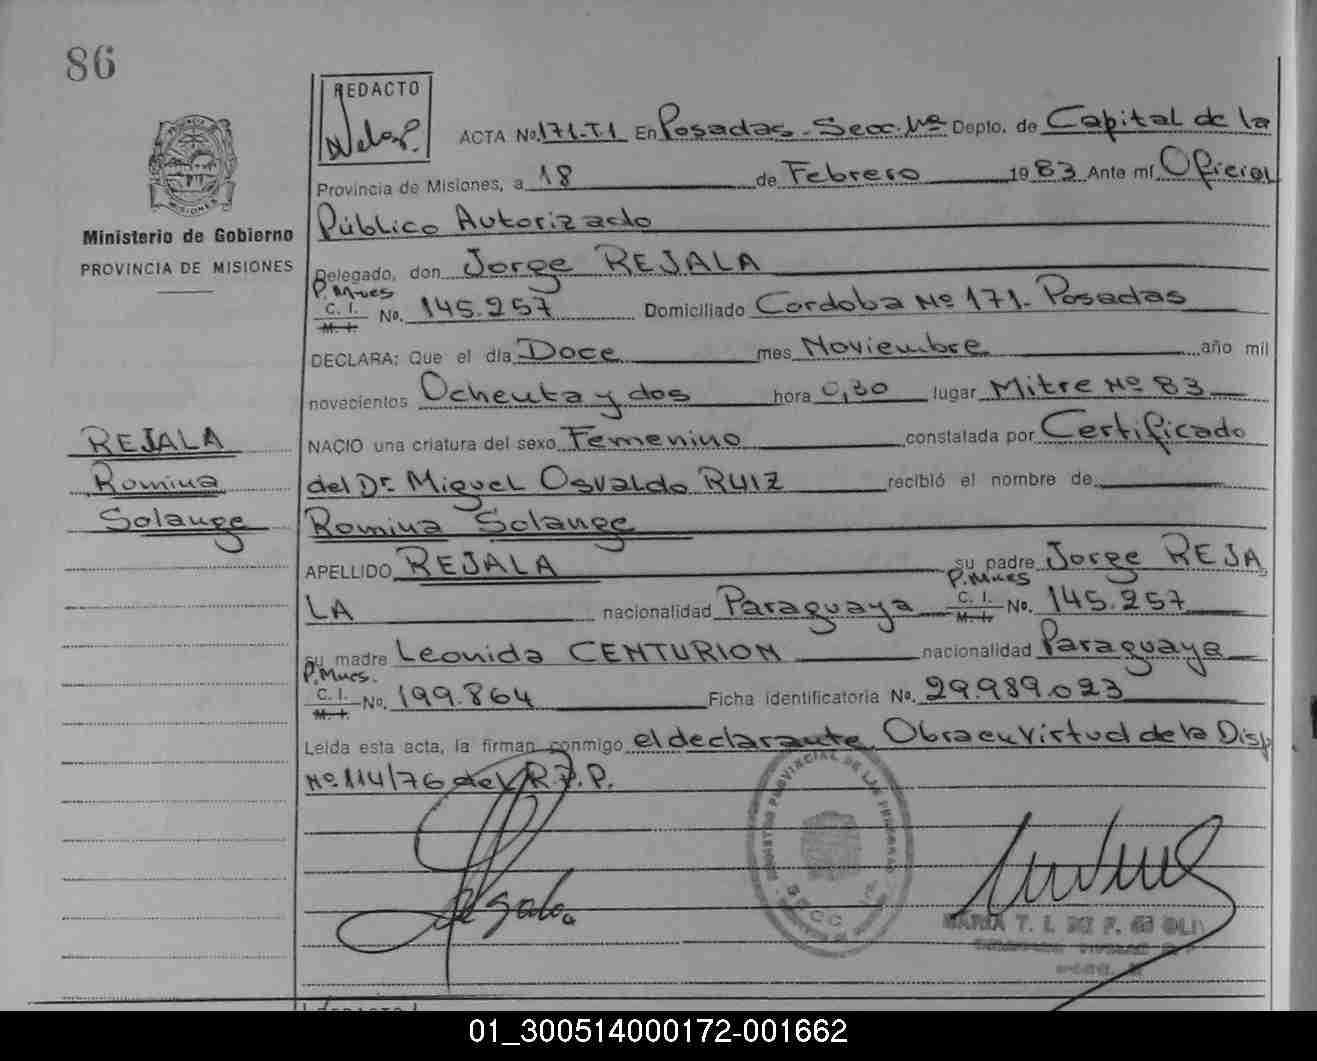 86
REDACTO
PROVINCIA DE
MISIONES
Ministerio de Gobierno
PROVINCIA DE MISIONES
ACTA No. 171.T.1 En Posadas. Secc. 1ª Depto. de Capital de la
Provincia de Misiones, a 18 de Febrero 1983 Ante mí Oficial
Público Autorizado
Delegado, don Jorge REJALA
P. Mnes
C. I.
M. I. No. 145.257 Domiciliado Cordoba Nº 171. Posadas
DECLARA: Que el día Doce mes Noviembre año mil
novecientos Ochenta y dos hora 0,30 lugar Mitre Nº 83
REJALA
Romina
Solange
NACIO una criatura del sexo Femenino constatada por Certificado
del Dr. Miguel Osvaldo RUIZ recibió el nombre de
Romina Solange
APELLIDO REJALA su padre Jorge REJA
P. Mnes
LA nacionalidad Paraguaya C. I. M. I. No. 145.257
su madre Leonida CENTURION nacionalidad Paraguaya
P. Mnes.
C. I.
M. I. No. 199.864 Ficha identificatoria No. 29.989.023
Leída esta acta, la firman conmigo el declarante. Obra en virtud de la Disp
Nº 114/76 del R.P.P.
REGISTRO PROVINCIAL DE LAS PERSONAS
SECC.
MARIA T. I. DE F. OLI
REDACTO
01_300514000172-001662